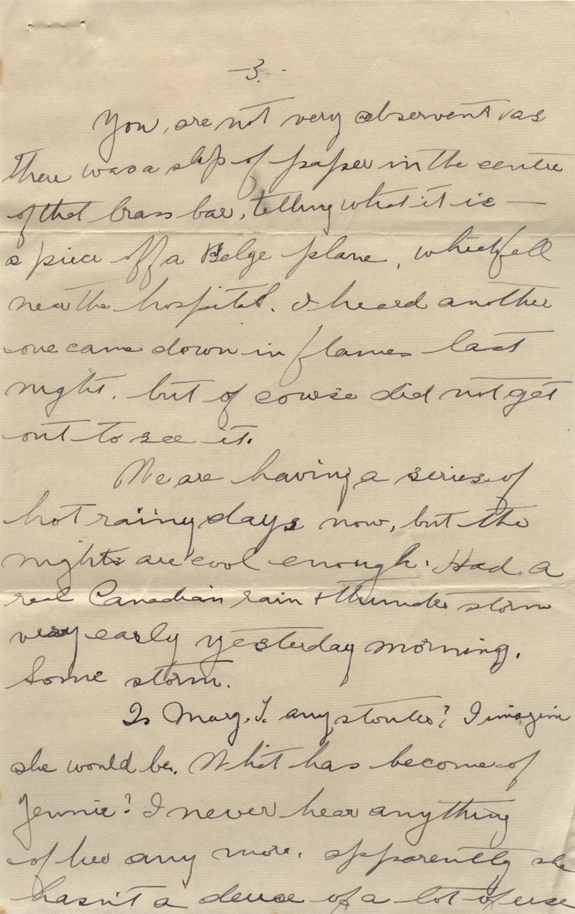 -3.-
You, are not very observent as
there was a slip of paper in the centre
of that brass bar, telling what it is —
a piece off a Belge plane, which fell
near the hospital. I heard another
one came down in flames last
night. but of course did not get
out to see it.
We are having a series of
hot rainy days now, but the
nights are cool enough. Had a
real Canadian rain + thunder storm
very early yesterday morning.
Some storm.
Is Marg. T. any stouter? I imagine
she would be. What has become of
Jennie? I never hear anything
of her any more. apparently she
hasn't a deuce of a lot of use